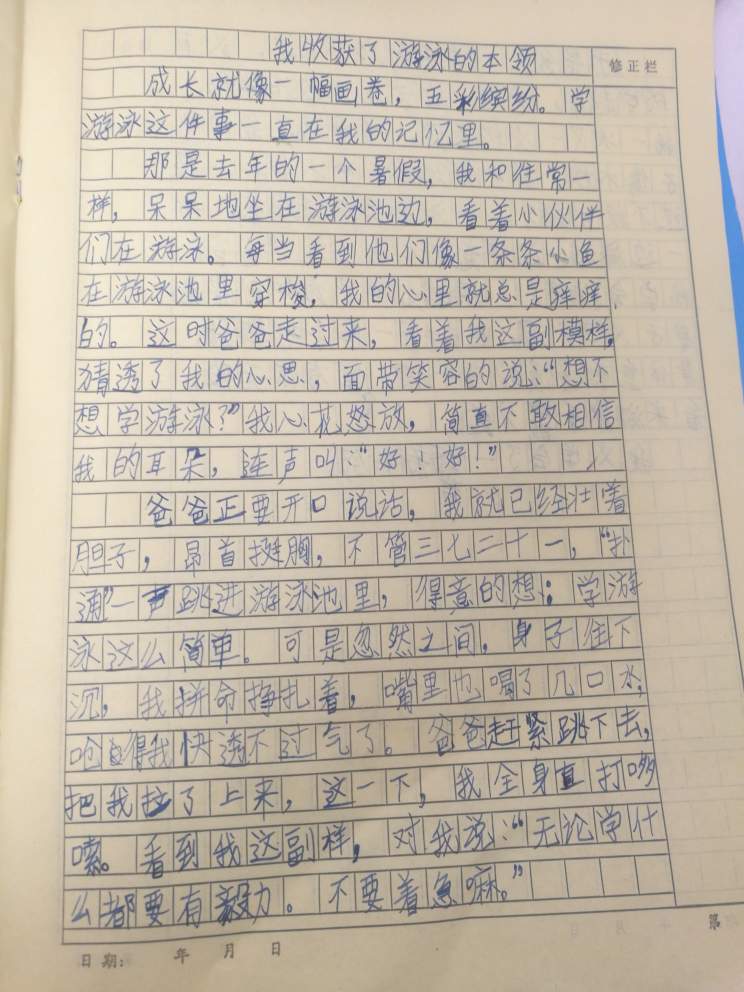 我收获了游泳的本领
修正栏
成长就像一幅画卷，五彩缤纷。学
游泳这件事一直在我的记忆里。
那是去年的一个暑假，我和往常一
样，呆呆地坐在游泳池边，看着小伙伴
们在游泳。每当看到他们像一条条小鱼
在游泳池里穿梭，我的心里就总是痒痒
的。这时爸爸走过来，看着我这副模样，
猜透了我的心思，面带笑容的说：“想不
想学游泳？”我心花怒放，简直不敢相信
我的耳朵，连声叫：“好！好！”
爸爸正要开口说话，我就已经壮着
胆子，昂首挺胸，不管三七二十一，“扑
通”一声跳进游泳池里，得意的想：学游
泳这么简单。可是忽然之间，身子往下
沉，我拼命挣扎着，嘴里也喝了几口水，
呛得我快透不过气了。爸爸赶紧跳下去，
把我拉了上来，这一下，我全身直打哆
嗦。看到我这副样，对我说：“无论学什
么都要有毅力。不要着急嘛。”
日期： 年 月 日
第